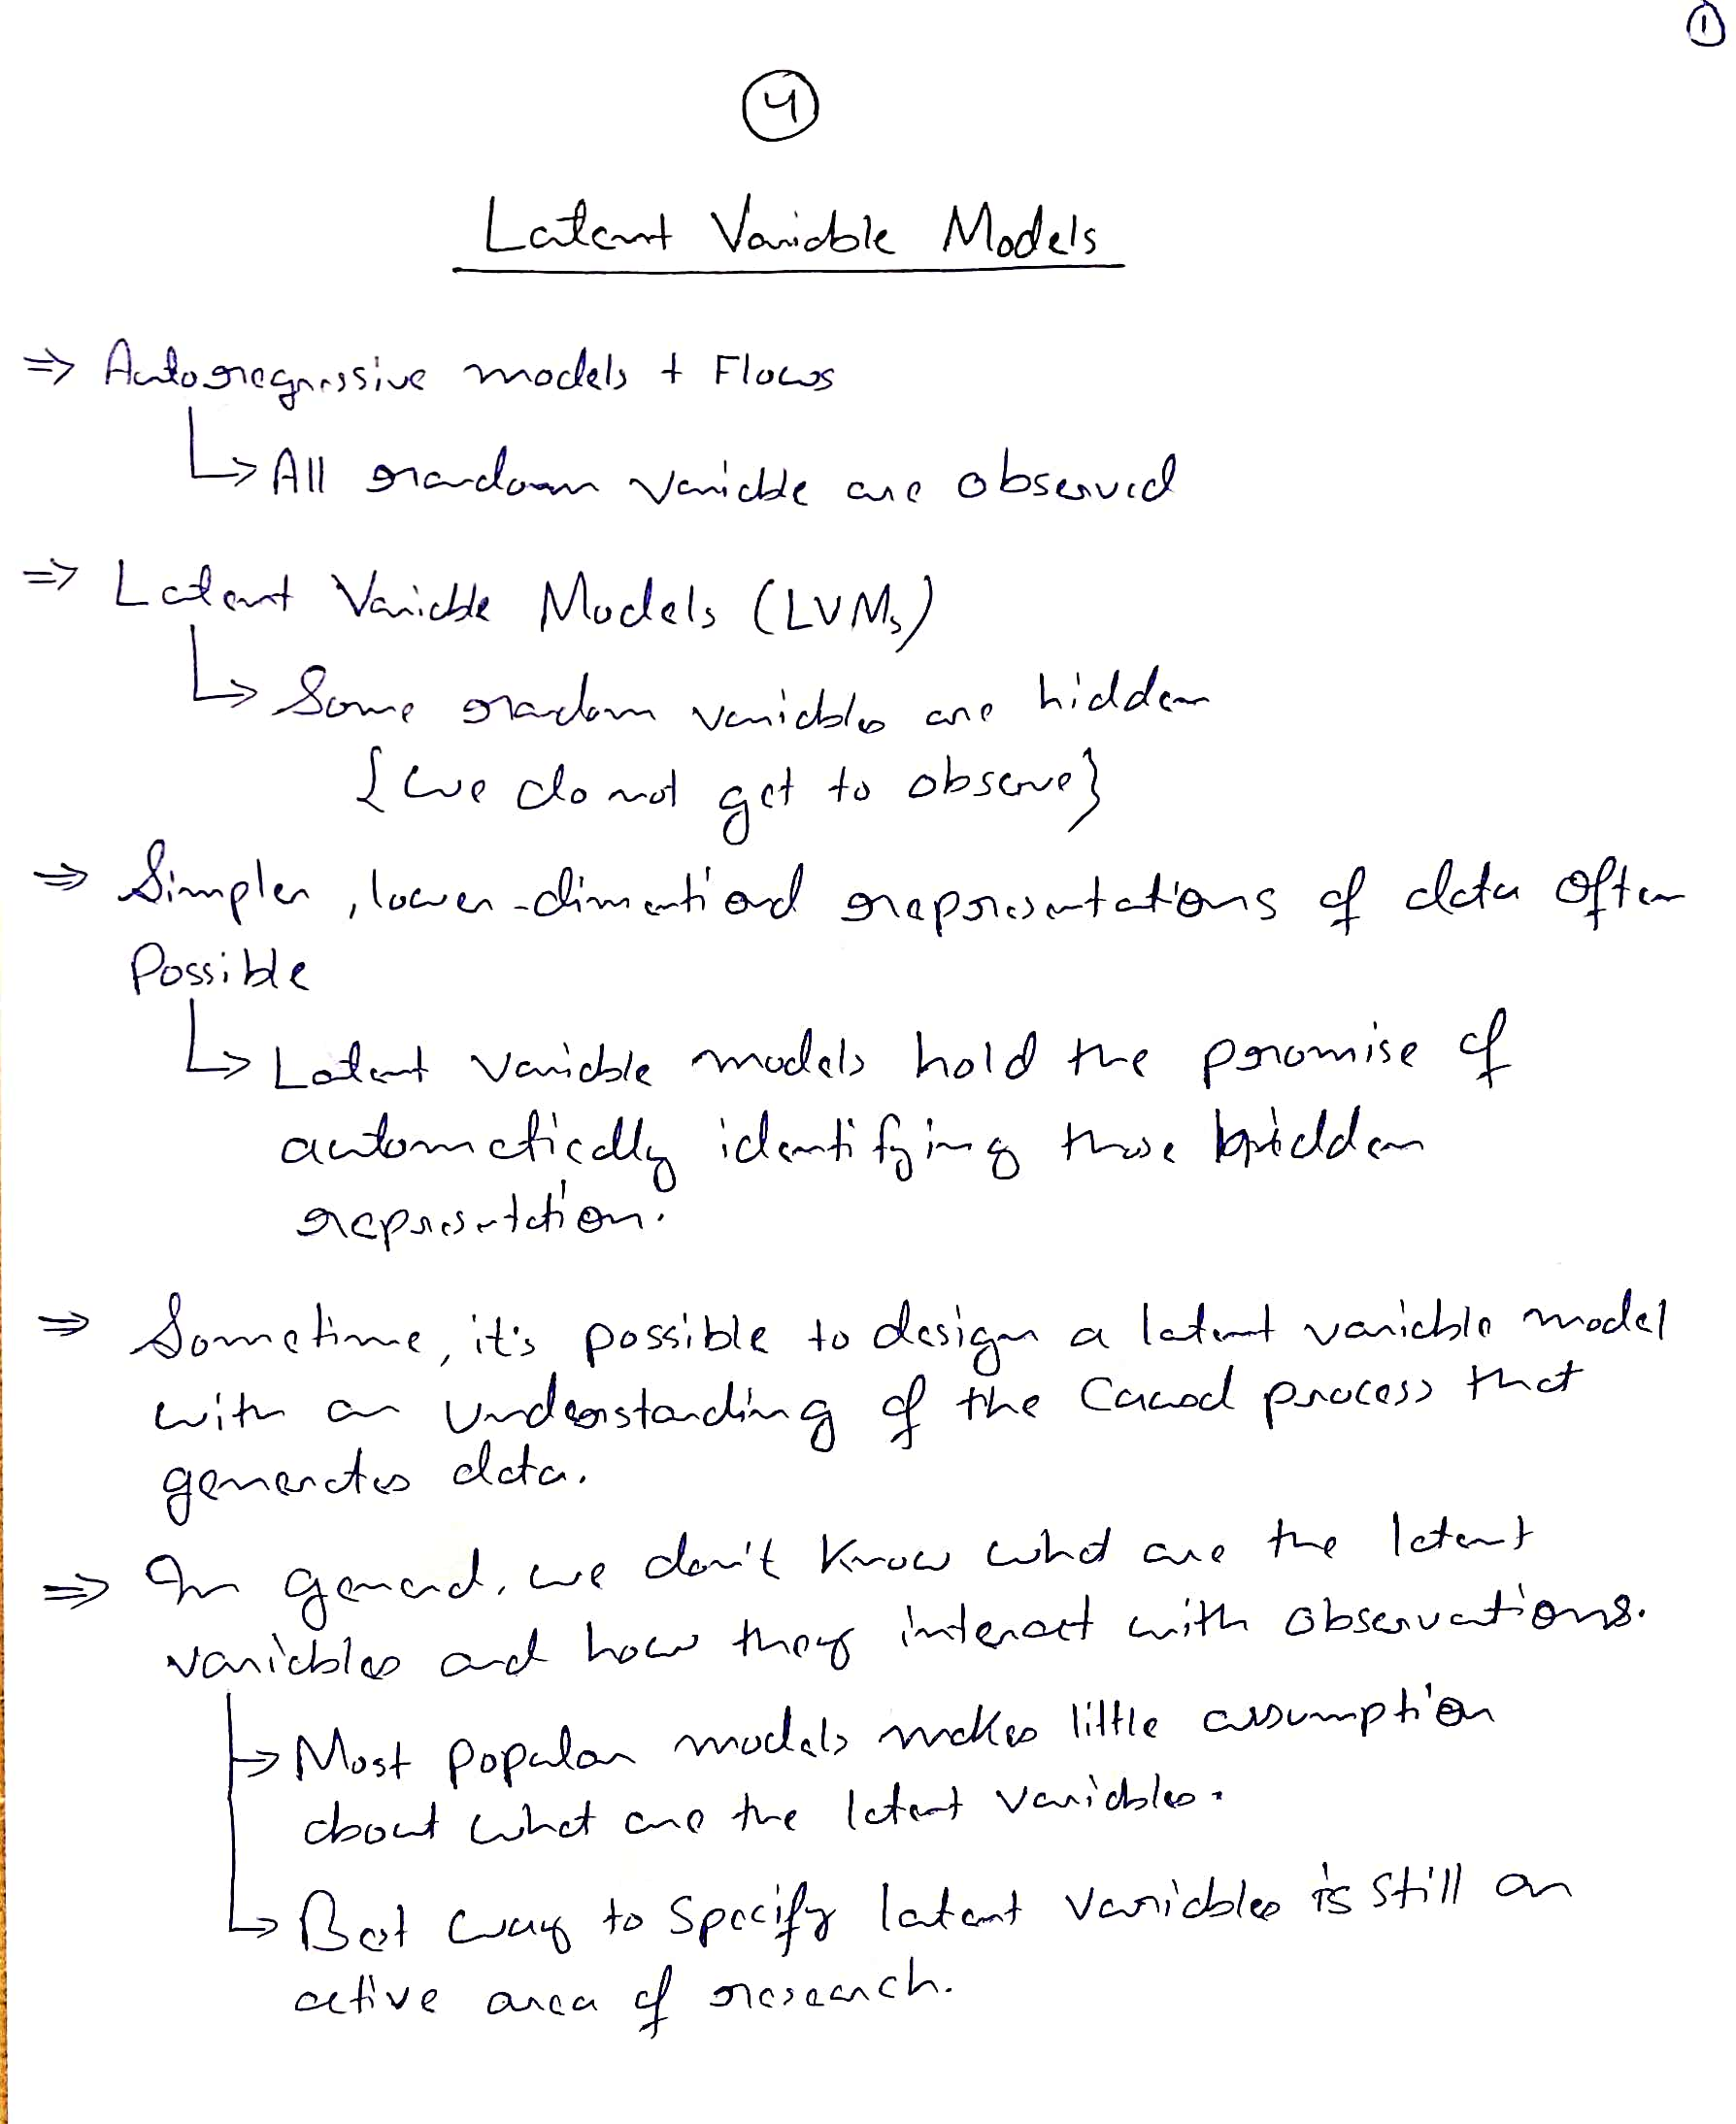 1
4
Latent Variable Models
⇒ Autoregressive models + Flows
↳ All random variable are observed
⇒ Latent Variable Models (LVMs)
↳ Some random variables are hidden
{we do not get to observe}
⇒ Simpler, lower-dimentional representations of data often
Possible
↳ Latent variable models hold the promise of
automatically identifying those hidden
representation.
⇒ Sometime, it's possible to design a latent variable model
with an understanding of the Causal process that
generates data.
⇒ In general, we don't know what are the latent
variables and how they interact with observations.
↳ Most popular models makes little assumption
about what are the latent variables.
↳ Best way to specify latent variables is still an
active area of research.